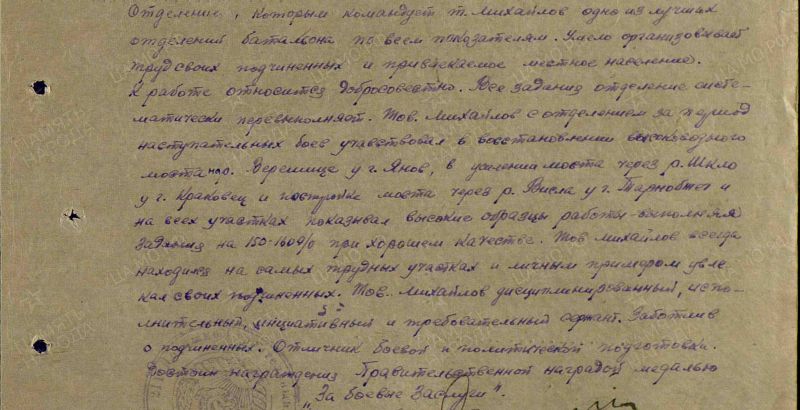 Отделение, которым командует т. Михайлов одно из лучших
отделений батальона по всем показателям. Умело организовывает
труд своих подчиненных и привлекаемое местное население.
К работе относится добросовестно. Все задания отделение систе-
матически перевыполняет. Тов. Михайлов с отделением за период
наступательных боев участвовал в восстановлении высоководного
моста на р. Верешице у г. Янов, в усилении моста через р. Шкло
у г. Краковец и постройке моста через р. Висла у г. Тарнобжег и
на всех участках показывал высокие образцы работы выполняя
задания на 150-160% при хорошем качестве. Тов. Михайлов всегда
находился на самых трудных участках и личным примером увле-
кал своих подчиненных. Тов. Михайлов дисциплинированный, испо-
лнительный, инициативный и требовательный сержант. Заботлив
о подчиненных. Отличник боевой и политической подготовки.
Достоин награждения Правительственной наградой медалью
"За боевые Заслуги".